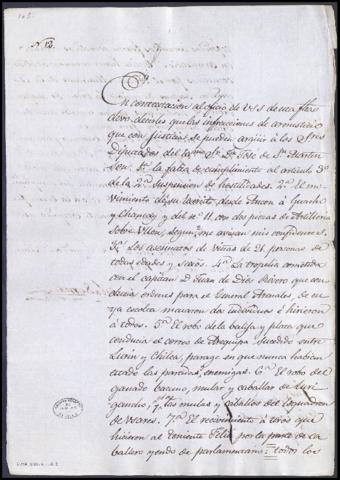 N. 12.
En contextacion al oficio de V.S.S de esta fha
devo decirles que las infracciones de armisticio
que con justicia se pueden argüir à los Sres
Diputados del Exmo Sr. Dn. Jose de Sn. Martin
son: 1ª la falta de cumplimiento al articulo 3º
de la Suspension de hostilidades. 2ª El mo
vimiento de su Exercito, desde Ancon à Guacho
y Chancay y del nº 11 con dos piezas de Artilleria
sobre segun me avisan mis confidentes.
3ª Los asesinatos de mas de 21 personas de
todas edades y sexos. 4ª La tropelia cometida
con el capitan D. Juan de Dios Rivero que con
ducia ordenes para el General Arenales, de cu
ya escolta mataron dos individuos è hirieron
à todos. 5ª El robo de la balija y plata que
conducia el correo de Arequipa sucedido entre
Lurin y Chilca, parage en que nunca habian
estado las partidas enemigas. 6ª El robo del
ganado bacuno, mular y caballar de Luri
gancho, y las mulas y caballos del Esquadron
de 7ª El recivimiento à tiros que
hicieron al teniente por la parte de ca
ballero yendo de parlamentario: todos los